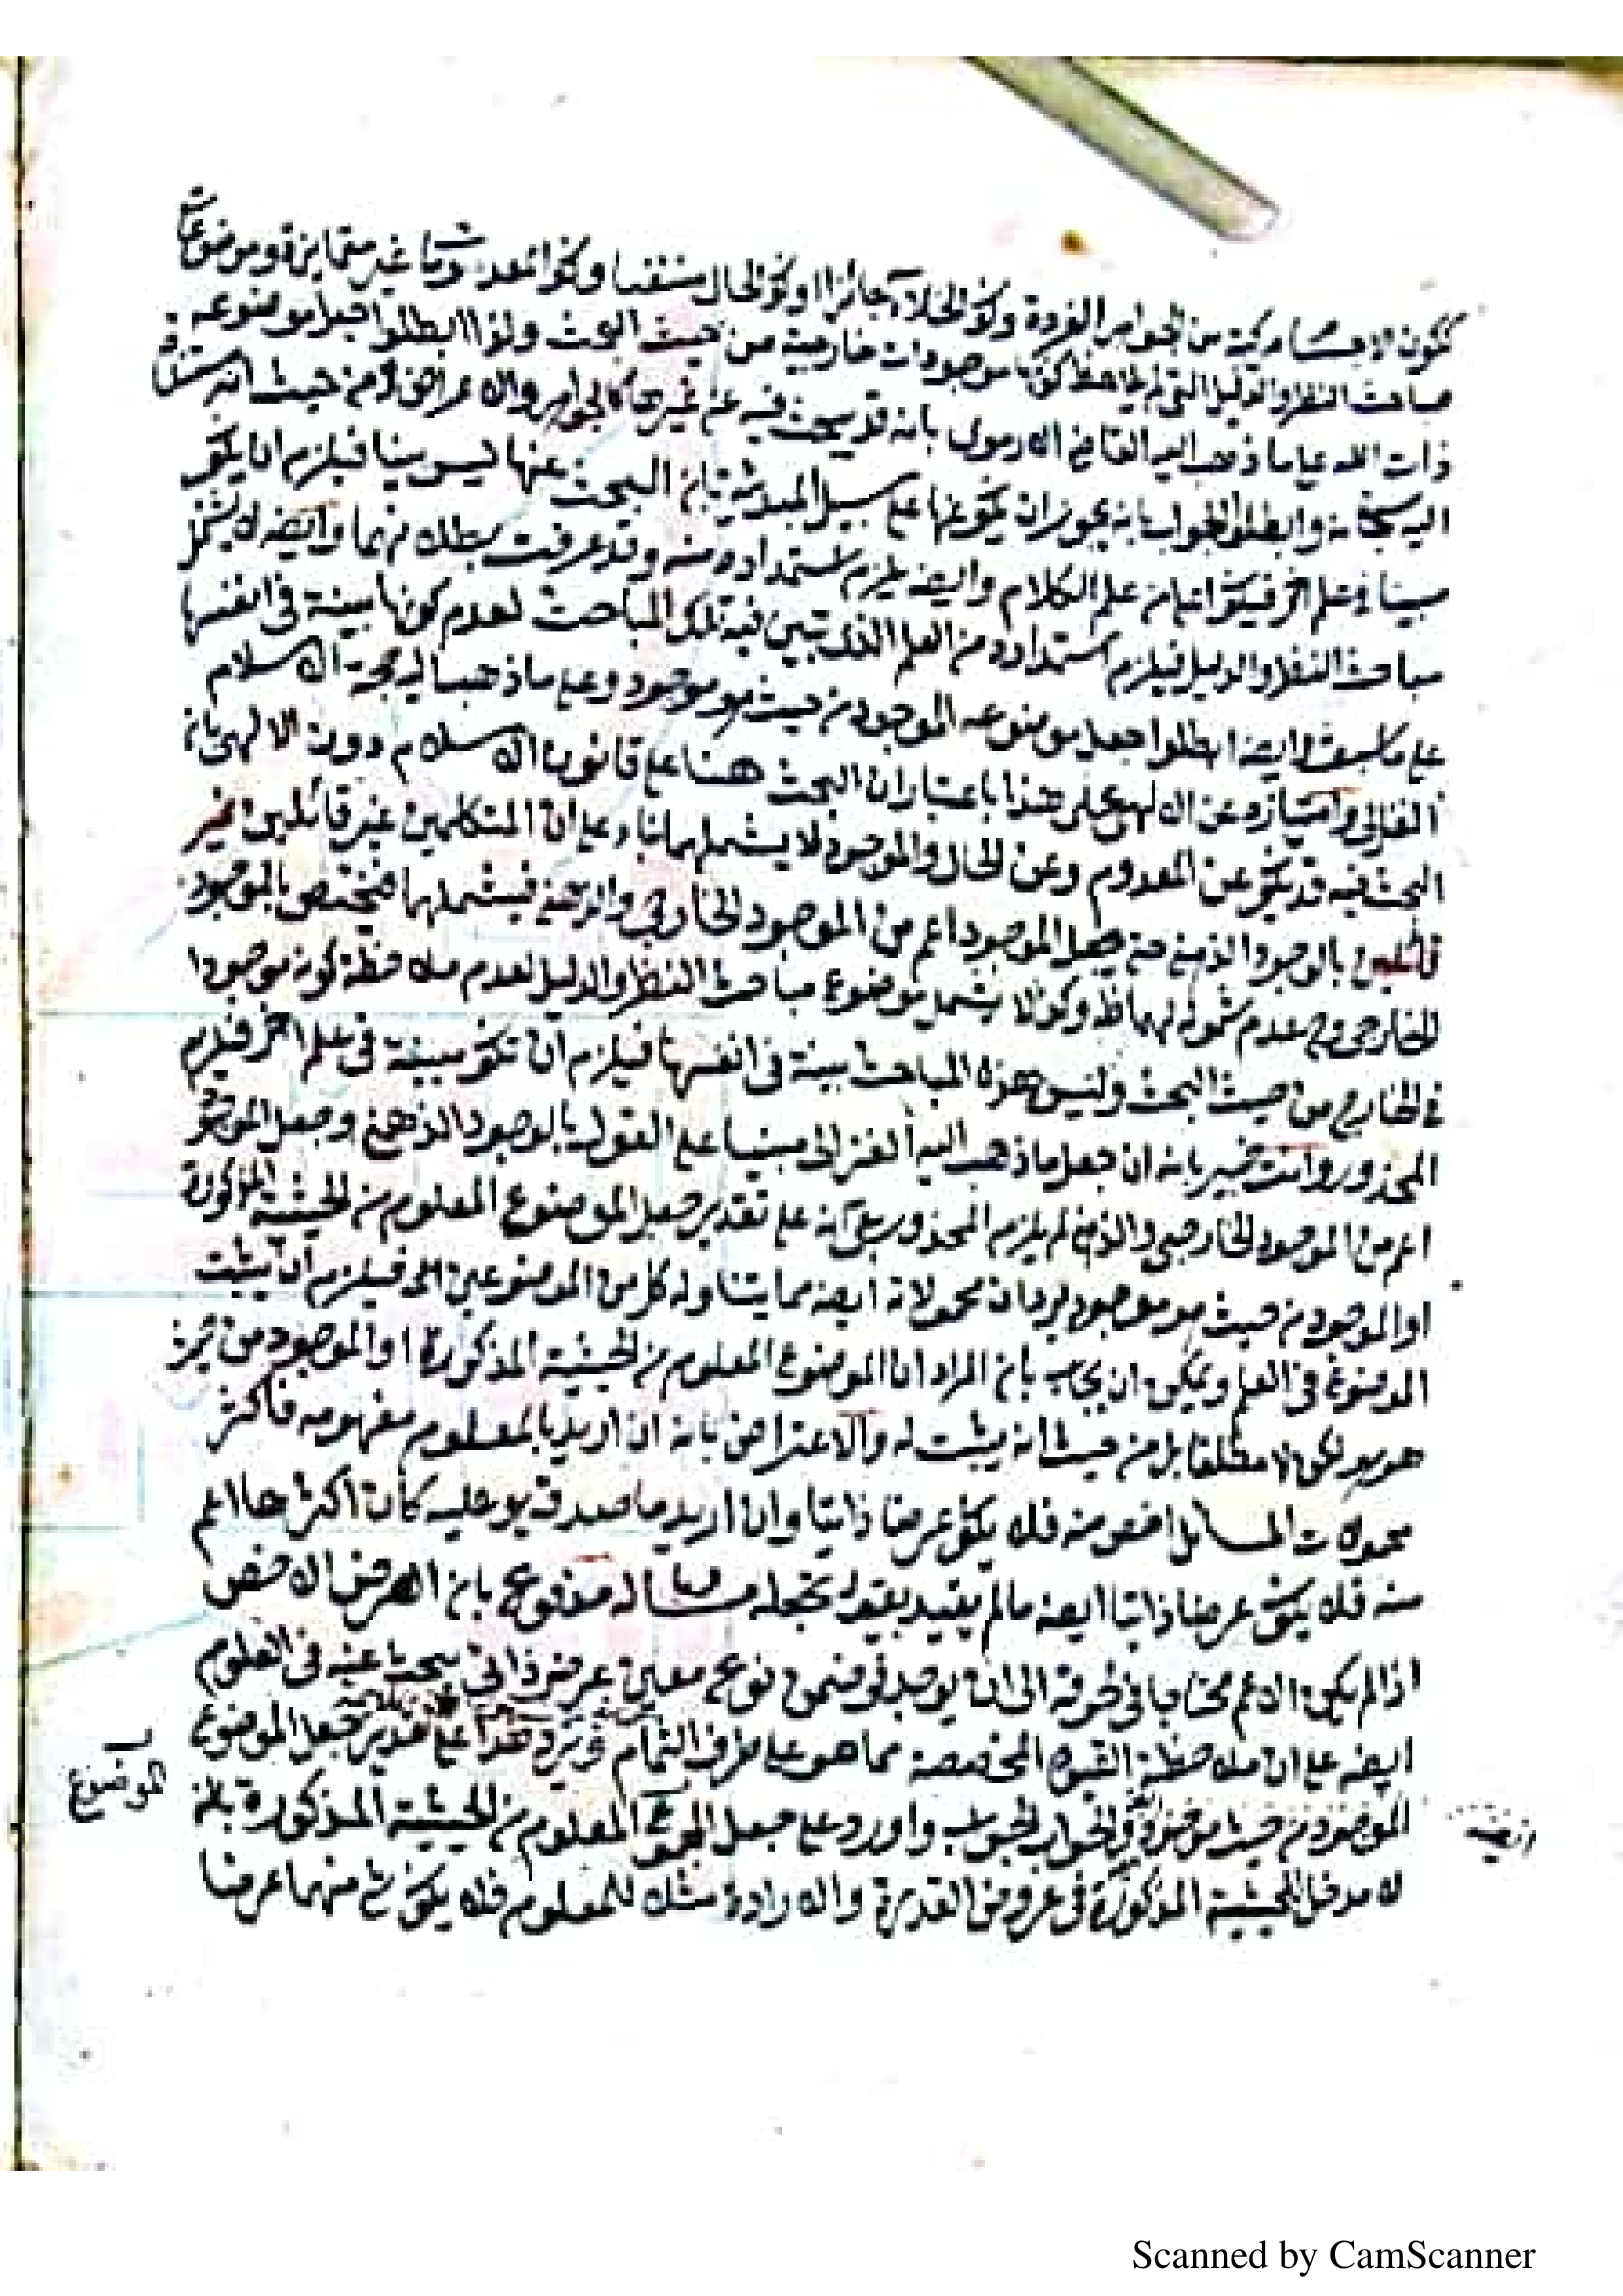 ككون الاجسام مركبة من الجواهر الفردة وكون الخلاء جائزا وكون الحال منتفيا وكون المعدومات غير متمايزة وموضوعات
مباحث النظر والدليل التي لم يلاحظ كونها موجودات خارجية من حيث البحث ولذا ابطلوا جعل موضوعه
ذات الله على ما ذهب اليه القاضي الارموي بانه قد يبحث فيه عن غيرها كالجواهر والاعراض لا من حيث انه مستند
اليه سبحانه وابطلوا الجواب بانه يجوز ان يكون عنها على سبيل المبدئية بان البحث عنها ليس بينا فيلزم ان يكون
مبينا في علم اخر فيكون اعلى من علم الكلام وايضه يلزم استمداده منه وقد عرفت بطلانهما وايضه لا يشمل
مباحث النظر والدليل فيلزم استمداده من العلم الذي تبين فيه تلك المباحث لعدم كونها بينة في انفسها
على ما سبق وايضه ابطلوا جعل موضوعه الموجود من حيث هو موجود وعلى ما ذهب اليه حجة الاسلام
الغزالي وامتيازه عن الالهي على هذا باعتبار ان البحث هنا على قانون الاسلام دون الالهي بان
البحث فيه قد يكون عن المعدوم وعن الحال والموجود لا يشملهما بناء على ان المتكلمين غير قائلين غير
قائلين بالوجود الذهني حتى يجعل الموجود اعم من الموجود الخارجي والذهني فيشملهما فيختص بالموجود
الخارجي وح عدم شموله لهما ظ وكون لا يشمل موضوع مباحث النظر والدليل لعدم ملاحظة كونه موجودا
في الخارج من حيث البحث وليس هذه المباحث بينة في انفسها فيلزم ان تكون مبينة في علم اخر فيلزم
المحذور وانت خبير بانه ان جعل ما ذهب اليه الغزالي مبنيا على القول بالوجود الذهني وجعل الموجود
اعم من الموجود الخارجي والذهني لم يلزم المحذور بقي انه على تقدير جعل الموضوع المعلوم من الحيثية المذكورة
او الموجود من حيث هو موجود يرد ان محمولاته ايضه مما يتناوله كل من الموضوعين فيلزم ان يثبت
الموضوع في العلم ويمكن ان يجاب بان المراد ان الموضوع المعلوم من الحيثية المذكورة او الموجود من حيث
هو هو لكن لا مطلقا بل من حيث انه يثبت له والاعتراض بانه ان اريد بالمعلوم مفهومه فاكثر
محمولات المسائل اخص منه فلا يكون عرضا ذاتيا وان اريد ما صدق هو عليه كان اكثرها اعم
منه فلا يكون عرضا ذاتيا ايضه ما لم يقيد بقيد يجعله مساويا له مدفوع بان العرض الاخص
اذا لم يكن الاعم محتاجا في لحوقه الى ان يوجد في ضمن نوع معين عرض ذاتي يبحث عنه في العلوم
ايضه على ان ملاحظة القيود المخصصة مما هو على طرف الثمام ويرد هذا على تقدير جعل الموضوع
الموجود من حيث هو موجود والجواب الجواب واورد على جعل الموضوع المعلوم من الحيثية المذكورة بانه
لا مدخل للحيثية المذكورة في عروض القدرة والارادة مثلا للمعلوم فلا يكون شئ منهما عرضا
الموضوع
ايضه
Scanned by CamScanner